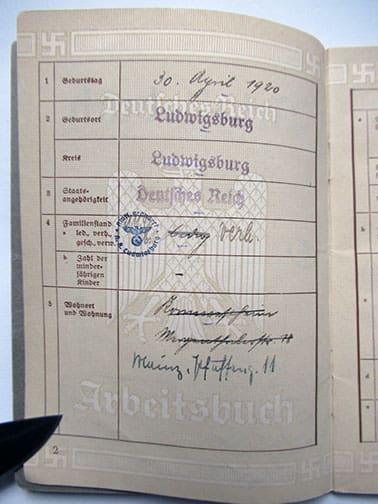 1 Geburtstag 30. April 1920
Deutsches Reich
2 Geburtsort Ludwigsburg
Kreis Ludwigsburg
3 Staats-
angehörigkeit Deutsches Reich
4 Familienstand
a led., verh.,
gesch., verw. ledig verh.
b Zahl der
minder-
jährigen
Kinder –
5 Wohnort
und Wohnung
Mainz, 11
Arbeitsbuch
2